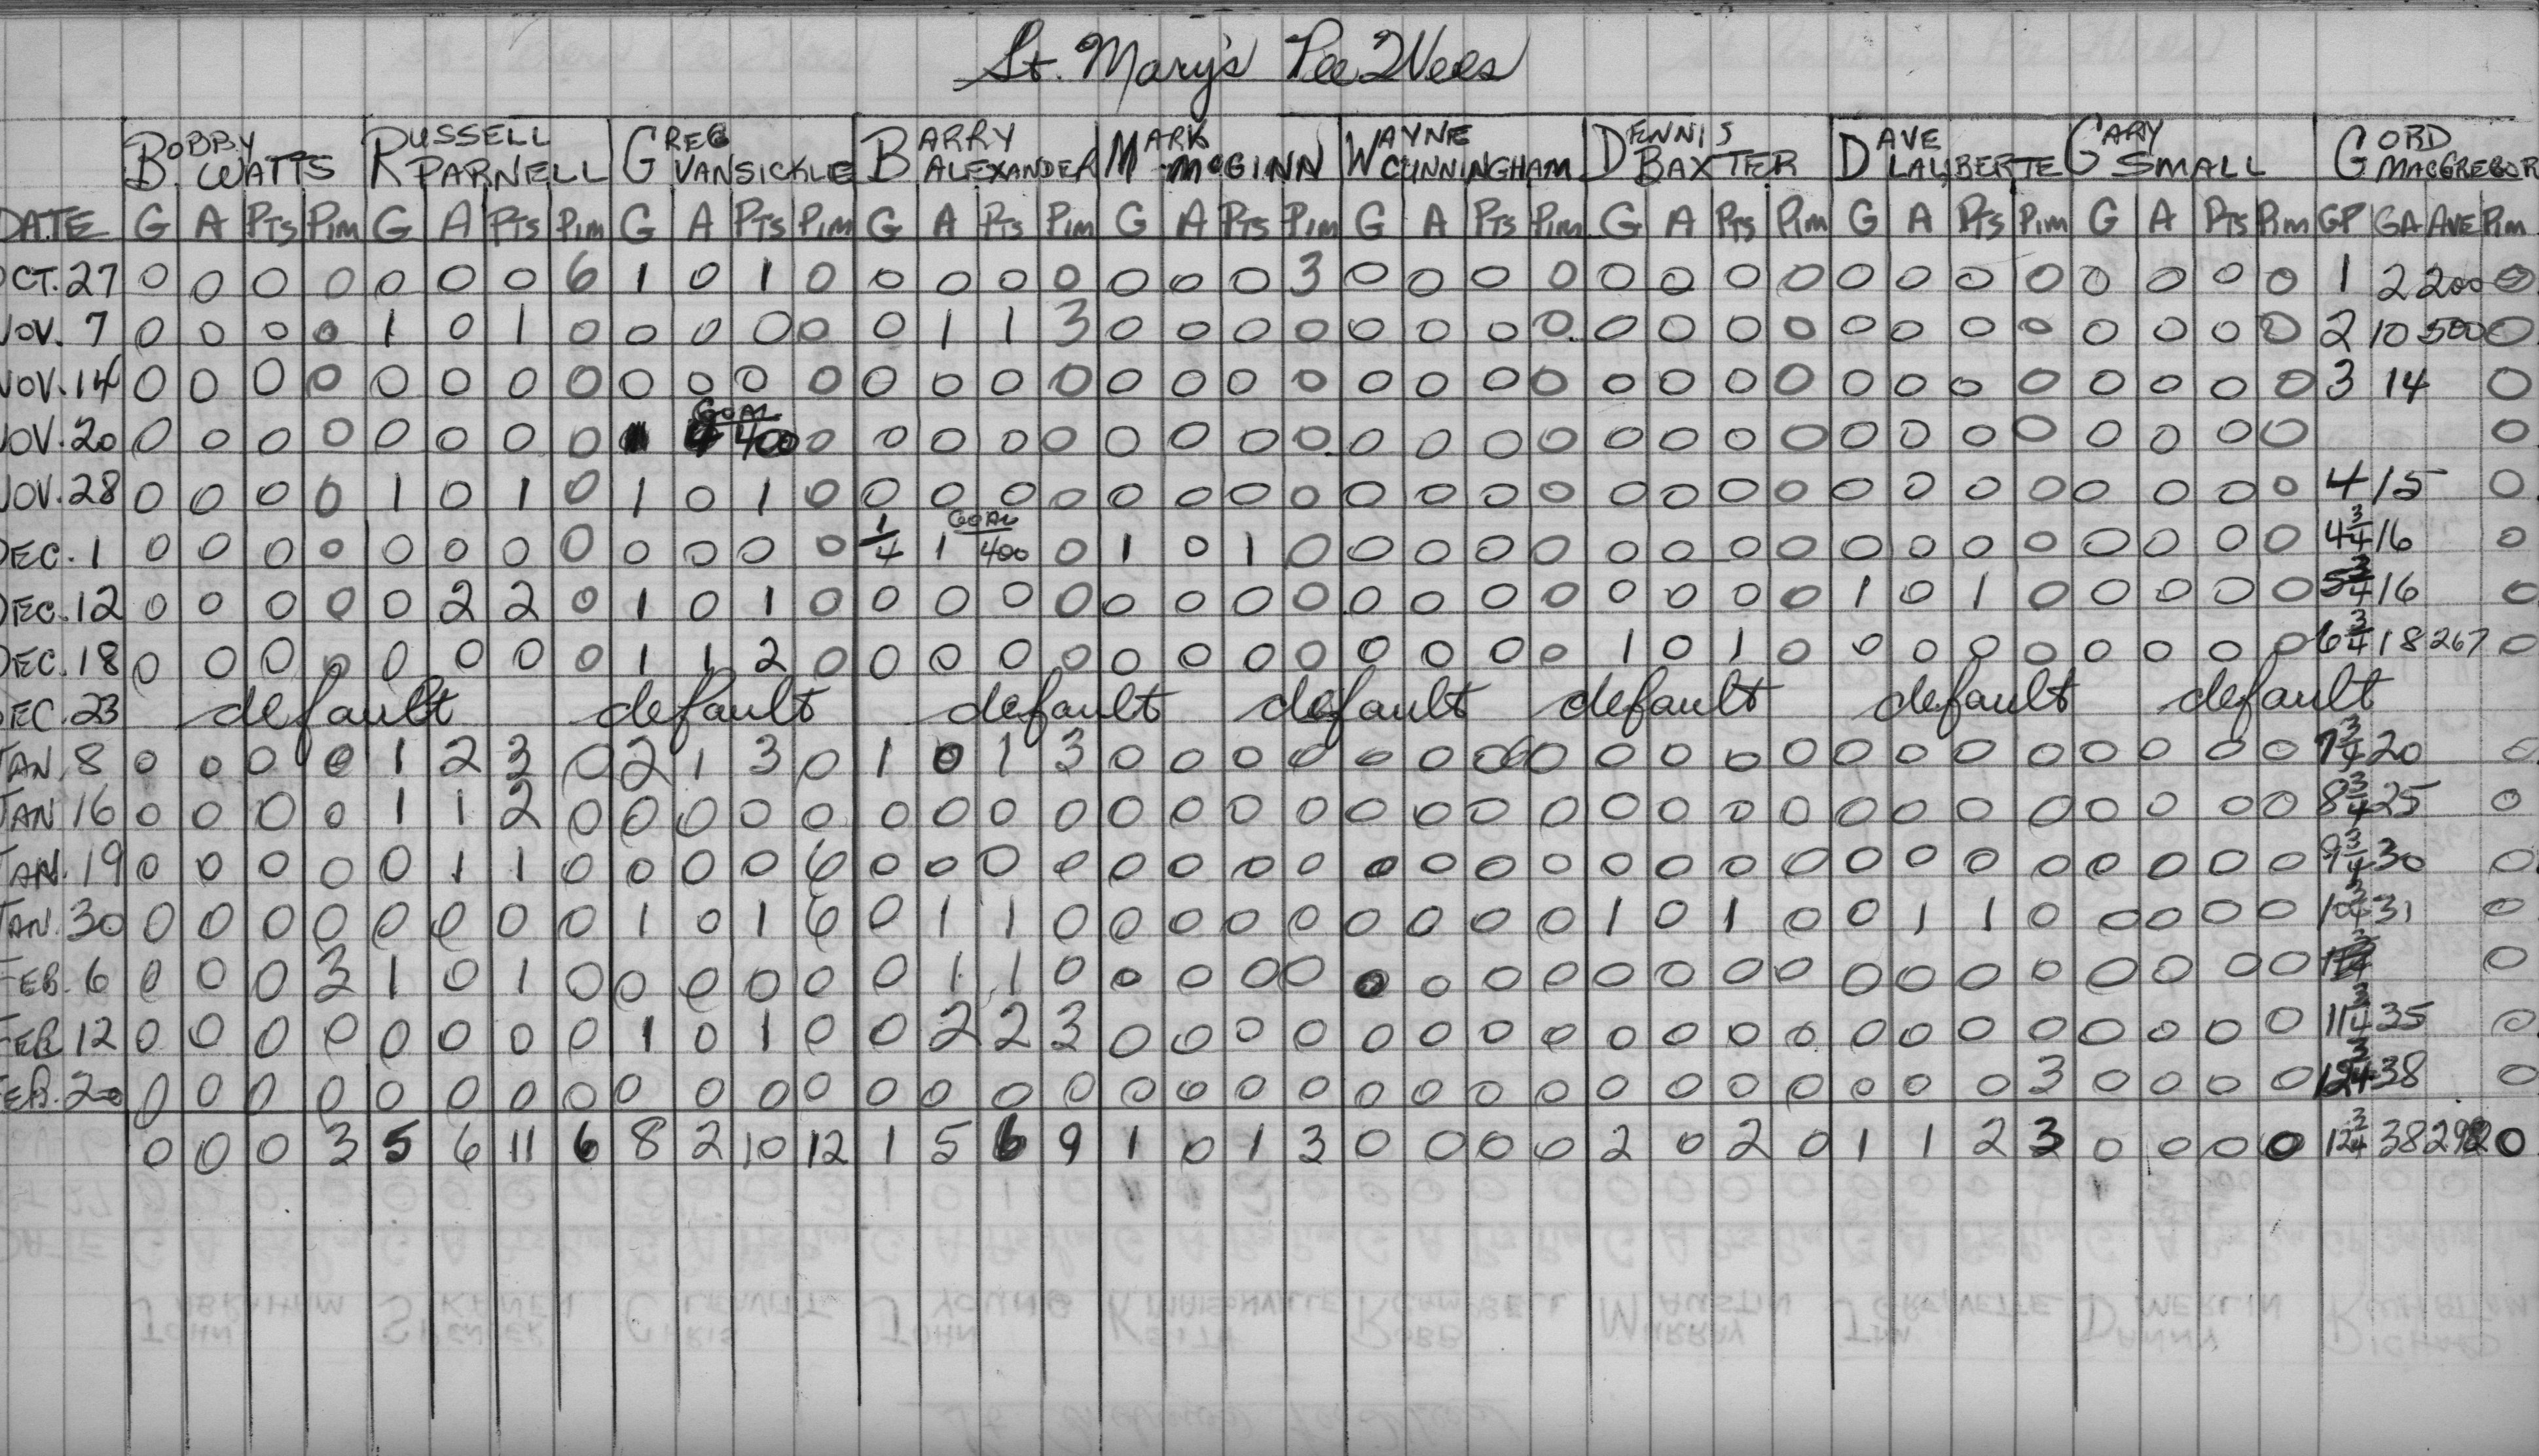 St. Mary's Pee Wees
BOBBY WATTS RUSSELL PARNELL GREG VANSICKLE BARRY ALEXANDER MARK McGINN WAYNE CUNNINGHAM DENNIS BAXTER DAVE LALIBERTE GARY SMALL GORD MACGREGOR
DATE G A PTS PIM G A PTS PIM G A PTS PIM G A PTS PIM G A PTS PIM G A PTS PIM G A PTS PIM G A PTS PIM G A PTS PIM GP GA AVE PIM
OCT. 27 0 0 0 0 0 0 0 6 1 0 1 0 0 0 0 0 0 0 0 3 0 0 0 0 0 0 0 0 0 0 0 0 0 0 0 0 1 2 200 0
NOV. 7 0 0 0 0 1 0 1 0 0 0 0 0 0 1 1 3 0 0 0 0 0 0 0 0 0 0 0 0 0 0 0 0 0 0 0 0 2 10 500 0
NOV. 14 0 0 0 0 0 0 0 0 0 0 0 0 0 0 0 0 0 0 0 0 0 0 0 0 0 0 0 0 0 0 0 0 0 0 0 0 3 14 0
NOV. 20 0 0 0 0 0 0 0 0 1 4 GOAL 400 0 0 0 0 0 0 0 0 0 0 0 0 0 0 0 0 0 0 0 0 0 0 0 0 0 0
NOV. 28 0 0 0 0 1 0 1 0 1 0 1 0 0 0 0 0 0 0 0 0 0 0 0 0 0 0 0 0 0 0 0 0 0 0 0 0 4 15 0
DEC. 1 0 0 0 0 0 0 0 0 0 0 0 0 1/4 1 GOAL 400 0 1 0 1 0 0 0 0 0 0 0 0 0 0 0 0 0 0 0 0 0 4 3/4 16 0
DEC. 12 0 0 0 0 0 2 2 0 1 0 1 0 0 0 0 0 0 0 0 0 0 0 0 0 0 0 0 0 1 0 1 0 0 0 0 0 5 3/4 16 0
DEC. 18 0 0 0 0 0 0 0 0 1 1 2 0 0 0 0 0 0 0 0 0 0 0 0 0 1 0 1 0 0 0 0 0 0 0 0 0 6 3/4 18 267 0
DEC. 23 default default default default default default default
JAN. 8 0 0 0 0 1 2 3 0 2 1 3 0 1 0 1 3 0 0 0 0 0 0 0 0 0 0 0 0 0 0 0 0 0 0 0 0 7 3/4 20 0
JAN 16 0 0 0 0 1 1 2 0 0 0 0 0 0 0 0 0 0 0 0 0 0 0 0 0 0 0 0 0 0 0 0 0 0 0 0 0 8 3/4 25 0
JAN. 19 0 0 0 0 0 1 1 0 0 0 0 6 0 0 0 0 0 0 0 0 0 0 0 0 0 0 0 0 0 0 0 0 0 0 0 0 9 3/4 30 0
JAN. 30 0 0 0 0 0 0 0 0 1 0 1 6 0 1 1 0 0 0 0 0 0 0 0 0 1 0 1 0 0 1 1 0 0 0 0 0 10 3/4 31 0
FEB. 6 0 0 0 3 1 0 1 0 0 0 0 0 0 1 1 0 0 0 0 0 0 0 0 0 0 0 0 0 0 0 0 0 0 0 0 0 0
FEB 12 0 0 0 0 0 0 0 0 1 0 1 0 0 2 2 3 0 0 0 0 0 0 0 0 0 0 0 0 0 0 0 0 0 0 0 0 11 3/4 35 0
FEB. 20 0 0 0 0 0 0 0 0 0 0 0 0 0 0 0 0 0 0 0 0 0 0 0 0 0 0 0 0 0 0 0 3 0 0 0 0 12 3/4 38 0
0 0 0 3 5 6 11 6 8 2 10 12 1 5 6 9 1 0 1 3 0 0 0 0 2 0 2 0 1 1 2 3 0 0 0 0 12 3/4 38 292 0